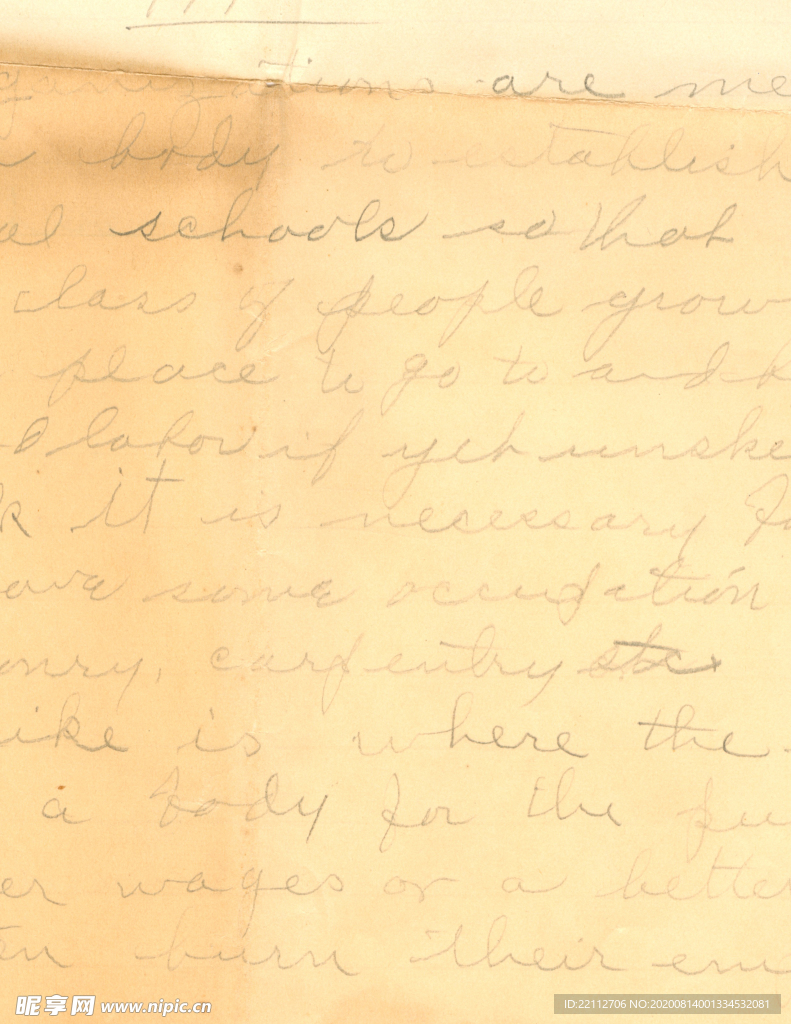 ganizations are me
n body to establish
al schools so that
class of people grow
place to go to and h
d labor if yet unske
k it is necessary fo
ave some occupation
onry, carpentry etc
ike is where the
a body for the pu
er wages or a better
en burn their em
昵享网 www.nipic.cn
ID:22112706 NO:20200814001334532081